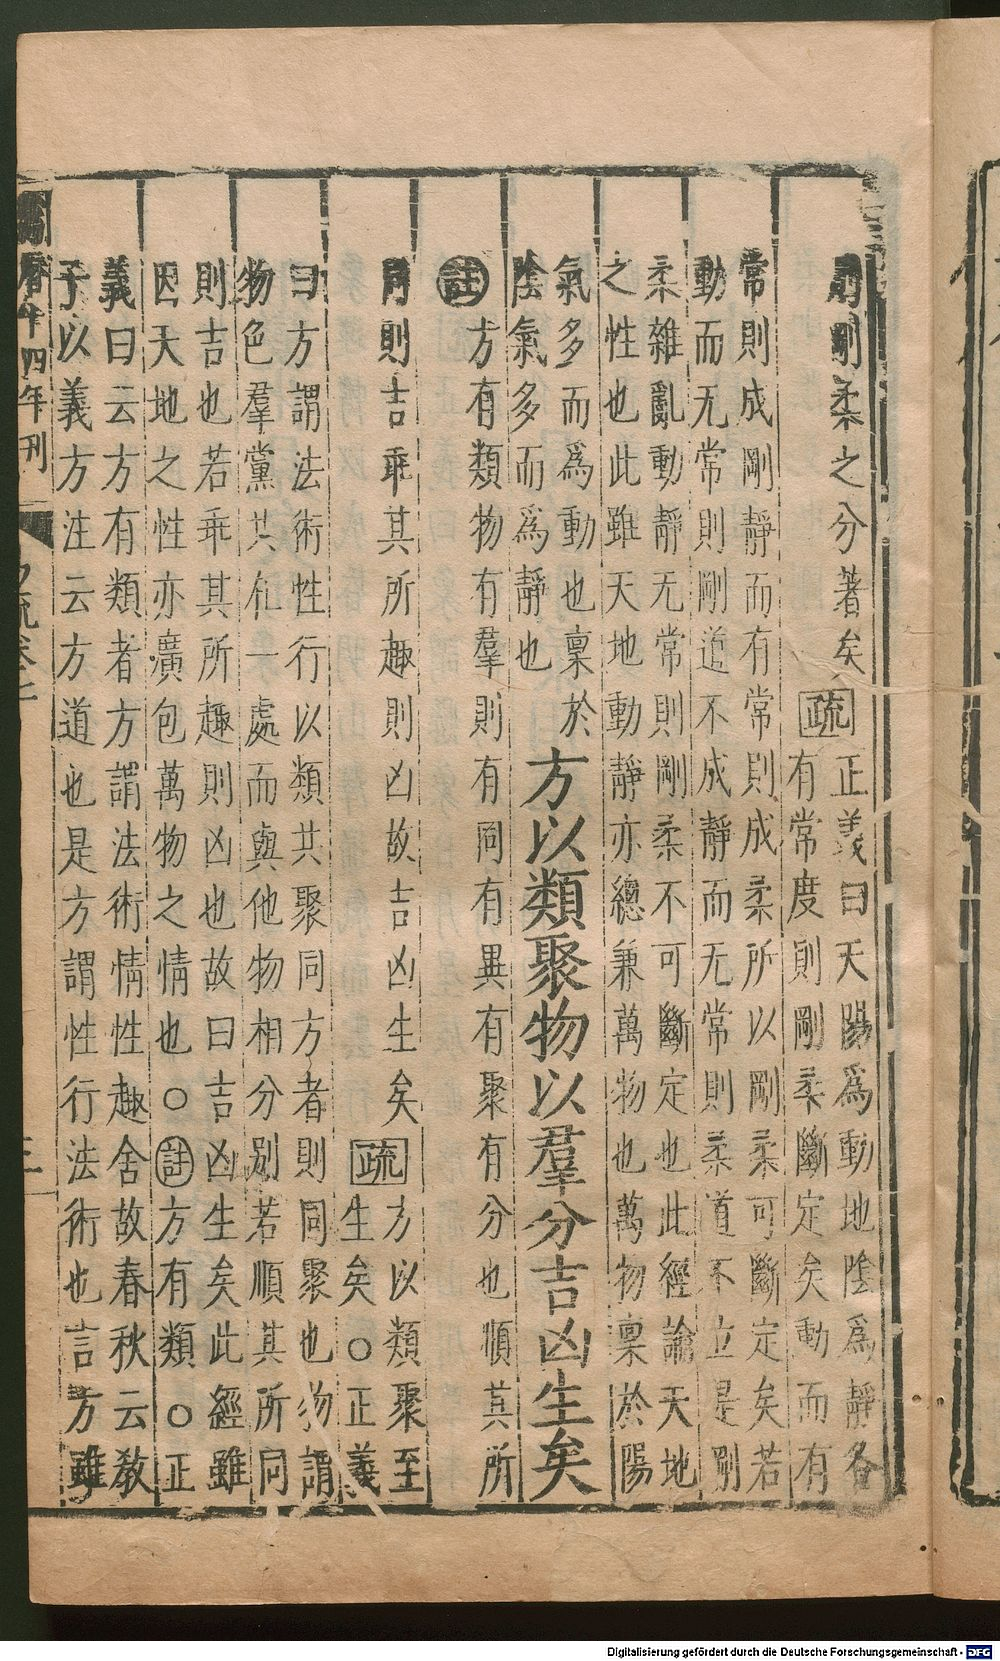 則剛柔之分著矣疏
正義曰天陽爲動地陰爲靜各
有常度則剛柔斷定矣動而有
常則成剛靜而有常則成柔所以剛柔可斷定矣若
動而无常則剛道不成靜而无常則柔道不立是剛
柔雜亂動靜无常則剛柔不可斷定也此經論天地
之性也此雖天地動靜亦總兼萬物也萬物稟於陽
氣多而爲動也稟於
陰氣多而爲靜也
方以類聚物以羣分吉凶生矣
註方有類物有羣則有同有異有聚有分也順其所
同則吉乖其所趣則凶故吉凶生矣疏
方以類聚至
生矣○正義
曰方謂法術性行以類共聚同方者則同聚也物謂
物色羣黨共在一處而與他物相分別若順其所同
則吉也若乖其所趣則凶也故曰吉凶生矣此經雖
因天地之性亦廣包萬物之情也○註方有類○正
義曰云方有類者方謂法術情性趣舍故春秋云教
子以義方注云方道也是方謂性行法術也言方雖
曆十四年刊
易疏卷十
三
Digitalisierung gefördert durch die Deutsche Forschungsgemeinschaft - DFG